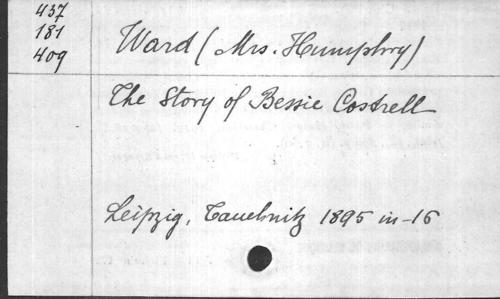 437
181
409
Ward (Mrs. Humphry)
The Story of Bessie Costrell
Leipzig, Tauchnitz 1895 in-16